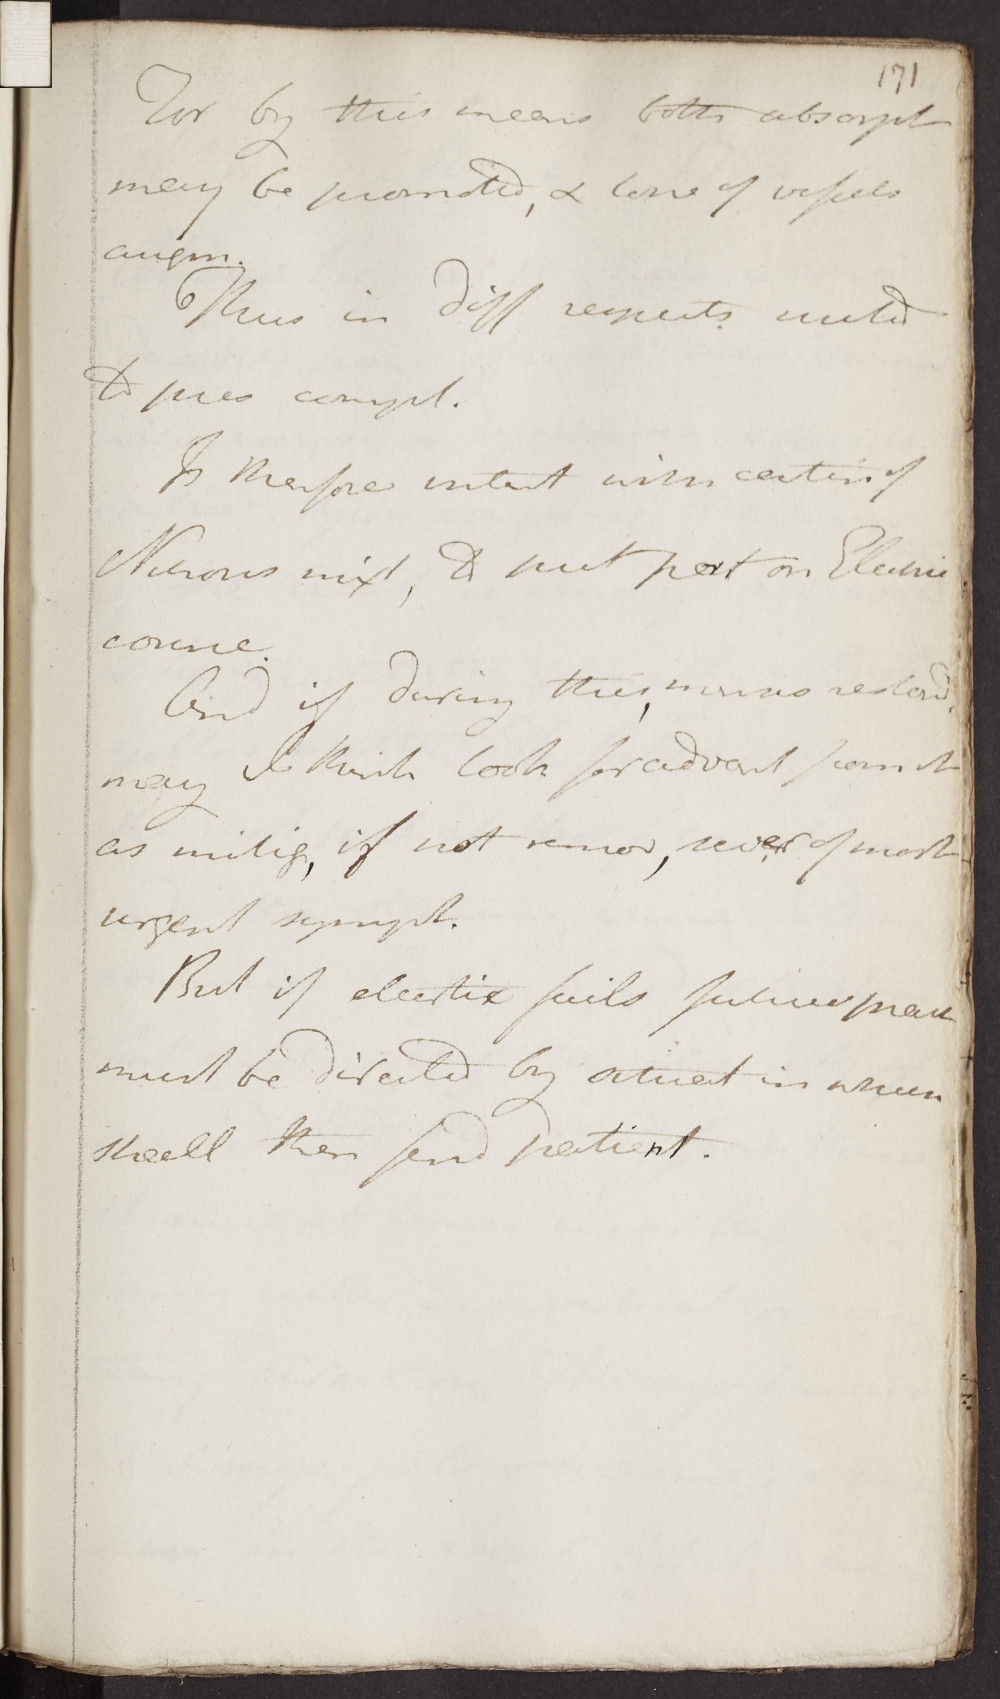 171
For by this means both absorpt
may be promoted, & tone of vessels
augm.
Thus in diff respects suited
to pres compl.
Is therefore intent with contin of
Nitrous mixt, to put pat on Electric
course.
And if during this, menses restord,
may I think look for advant from it
as mitig, if not remov, sever of most
urgent sympt.
But if electric fails future prac
must be directed by situat in when
shall then find patient.